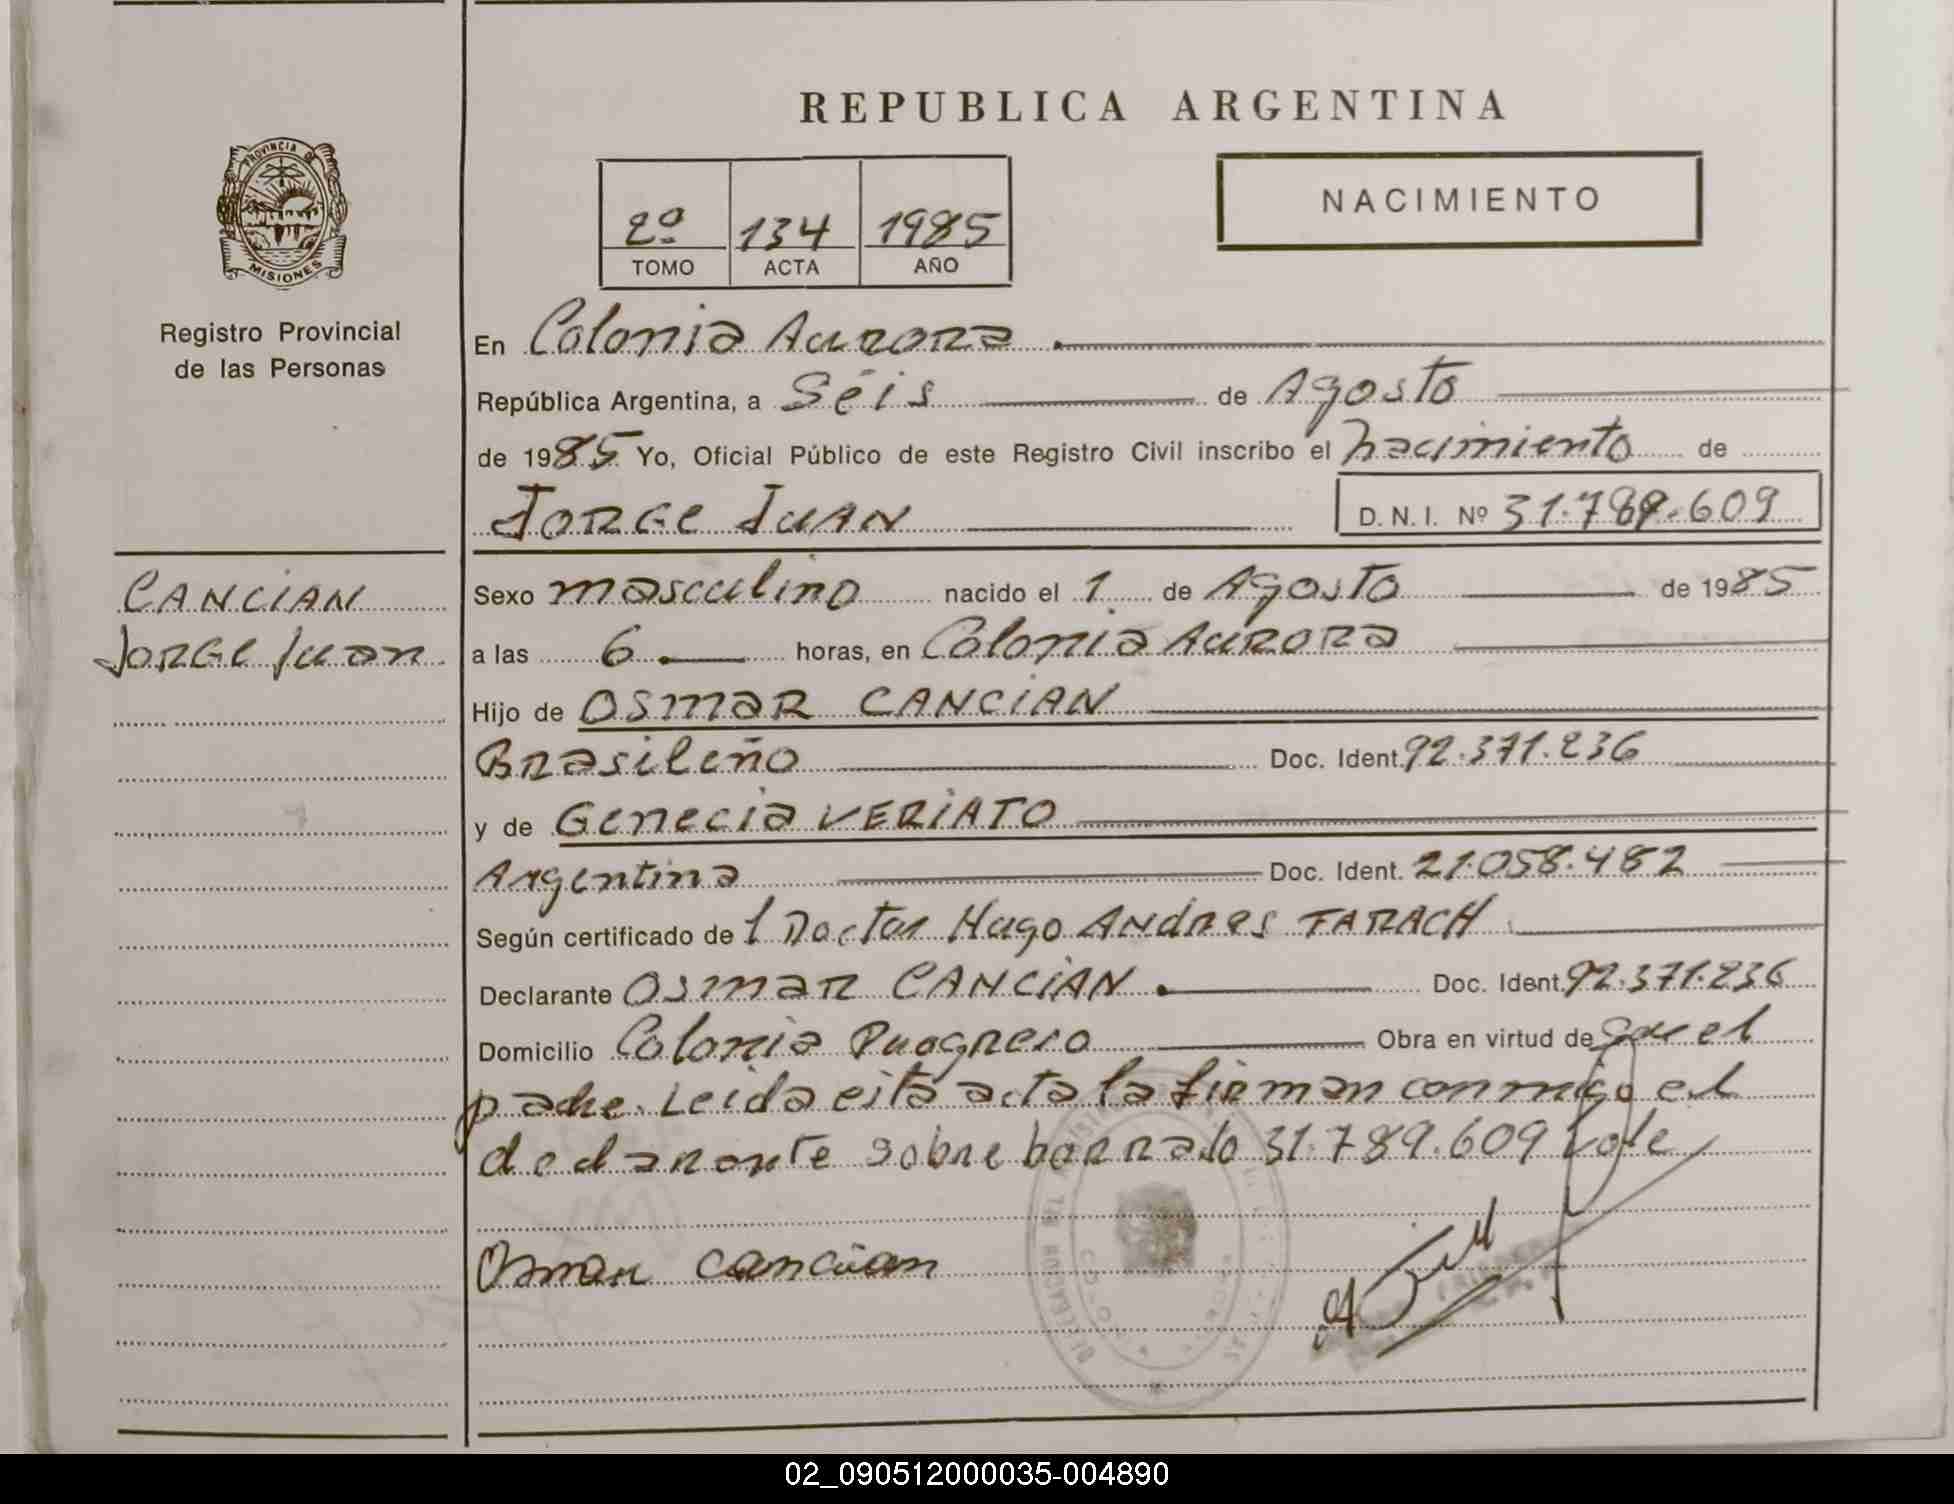 REPUBLICA ARGENTINA
PROVINCIA DE
MISIONES
Registro Provincial
de las Personas
2º 134 1985
TOMO ACTA AÑO
NACIMIENTO
En Colonia Aurora
República Argentina, a Séis de Agosto
de 1985 Yo, Oficial Público de este Registro Civil inscribo el nacimiento de
Jorge Juan D. N. I. Nº 31.789.609
CANCIAN
Jorge Juan
Sexo masculino nacido el 1 de Agosto de 1985
a las 6 horas, en Colonia Aurora
Hijo de Osmar CANCIAN
Brasileño Doc. Ident. 92.371.236
y de Genecia VERIATO
Argentina Doc. Ident. 21.058.482
Según certificado de l Doctor Hugo Andres FARACH
Declarante Osmar CANCIAN Doc. Ident. 92.371.236
Domicilio Colonia Progreso Obra en virtud de ser el
padre. Leida esta acta la firman conmigo el
declarante sobre borrado 31.789.609 Vale
Osmar Cancian
02_090512000035-004890